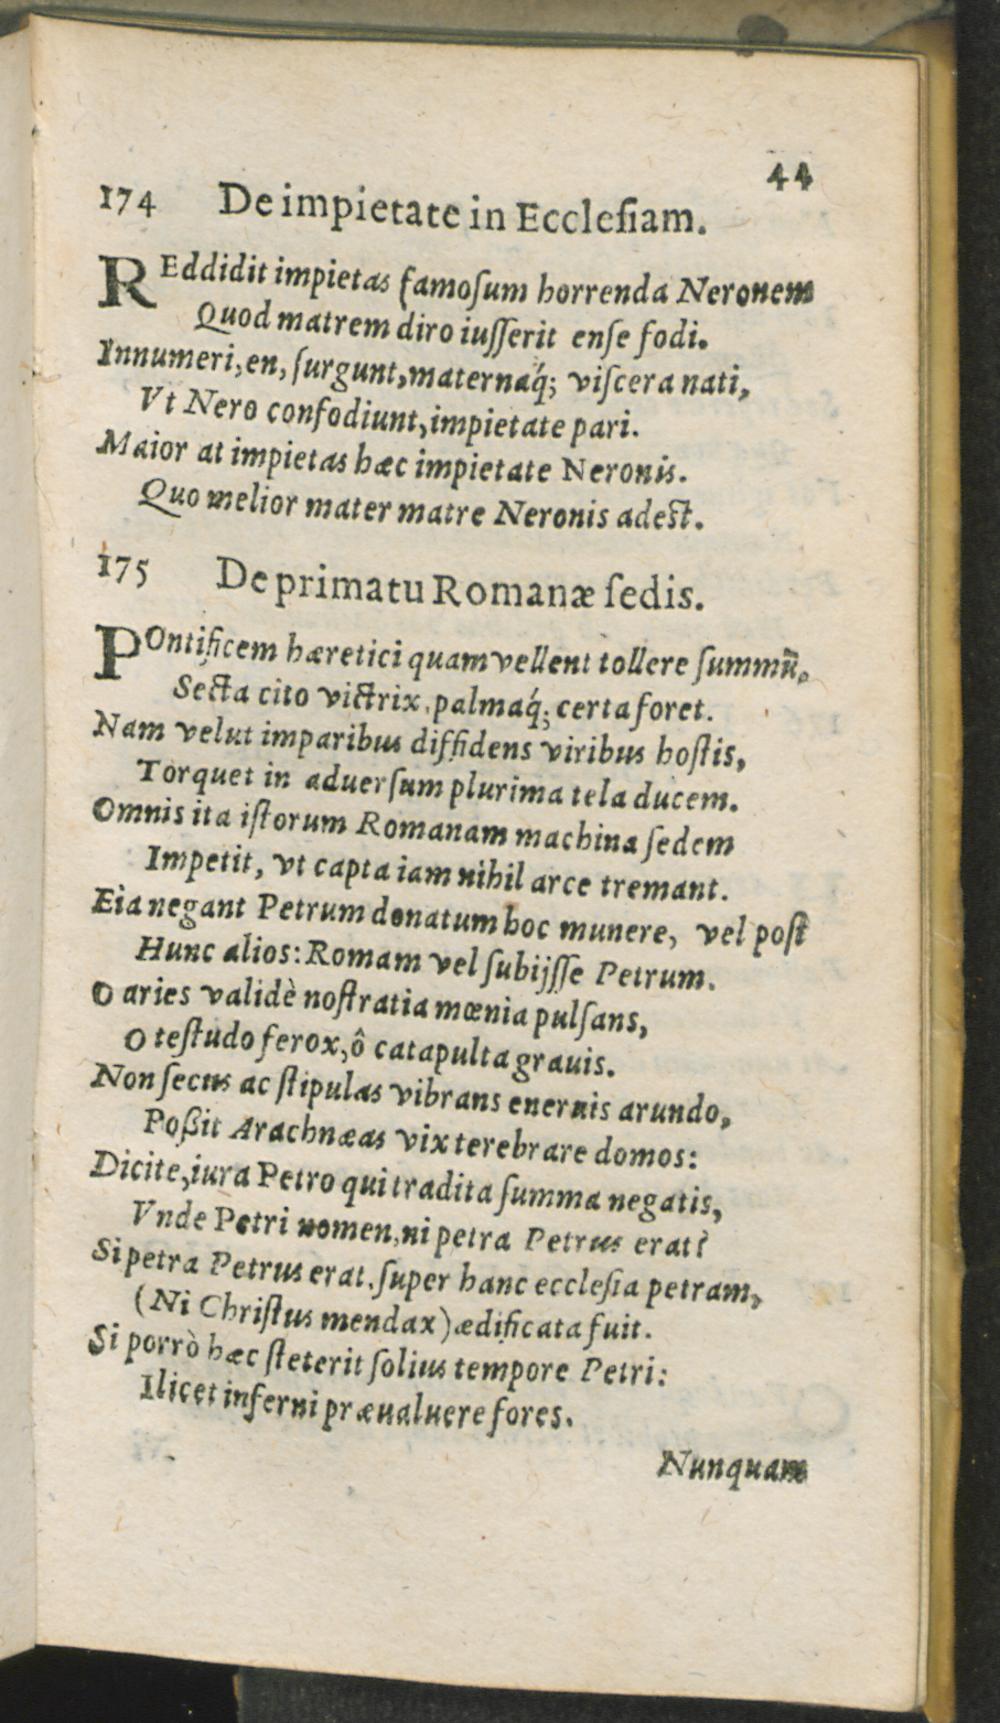 44
174 De impietate in Eccleſiam.
REddidit impietas famoſum horrenda Neronem
Quod matrem diro iuſſerit enſe fodi.
Innumeri, en, ſurgunt, maternaq́; viſcera nati,
Vt Nero confodiunt, impietate pari.
Maior at impietas hæc impietate Neronis.
Quo melior mater matre Neronis adest.
175 De primatu Romanæ ſedis.
POntificem hæretici quam vellent tollere ſummũ,
Secta cito victrix, palmaq́; certa foret.
Nam velut imparibus diffidens viribus hoſtis,
Torquet in aduerſum plurima tela ducem.
Omnis ita iſtorum Romanam machina ſedem
Impetit, vt capta iam nihil arce tremant.
Eia negant Petrum donatum hoc munere, vel poſt
Hunc alios: Romam vel ſubijſſe Petrum.
O aries validè noſtratia mœnia pulſans,
O teſtudo ferox, ô catapulta grauis.
Non ſecus ac ſtipulas vibrans eneruis arundo,
Poßit Arachnæas vix terebrare domos:
Dicite, iura Petro qui tradita ſumma negatis,
Vnde Petri nomen, ni petra Petrus erat?
Si petra Petrus erat, ſuper hanc eccleſia petram,
(Ni Chriſtus mendax) ædificata fuit.
Si porrò hæc ſteterit ſolius tempore Petri:
Ilicet inferni præualuere fores.
Nunquam